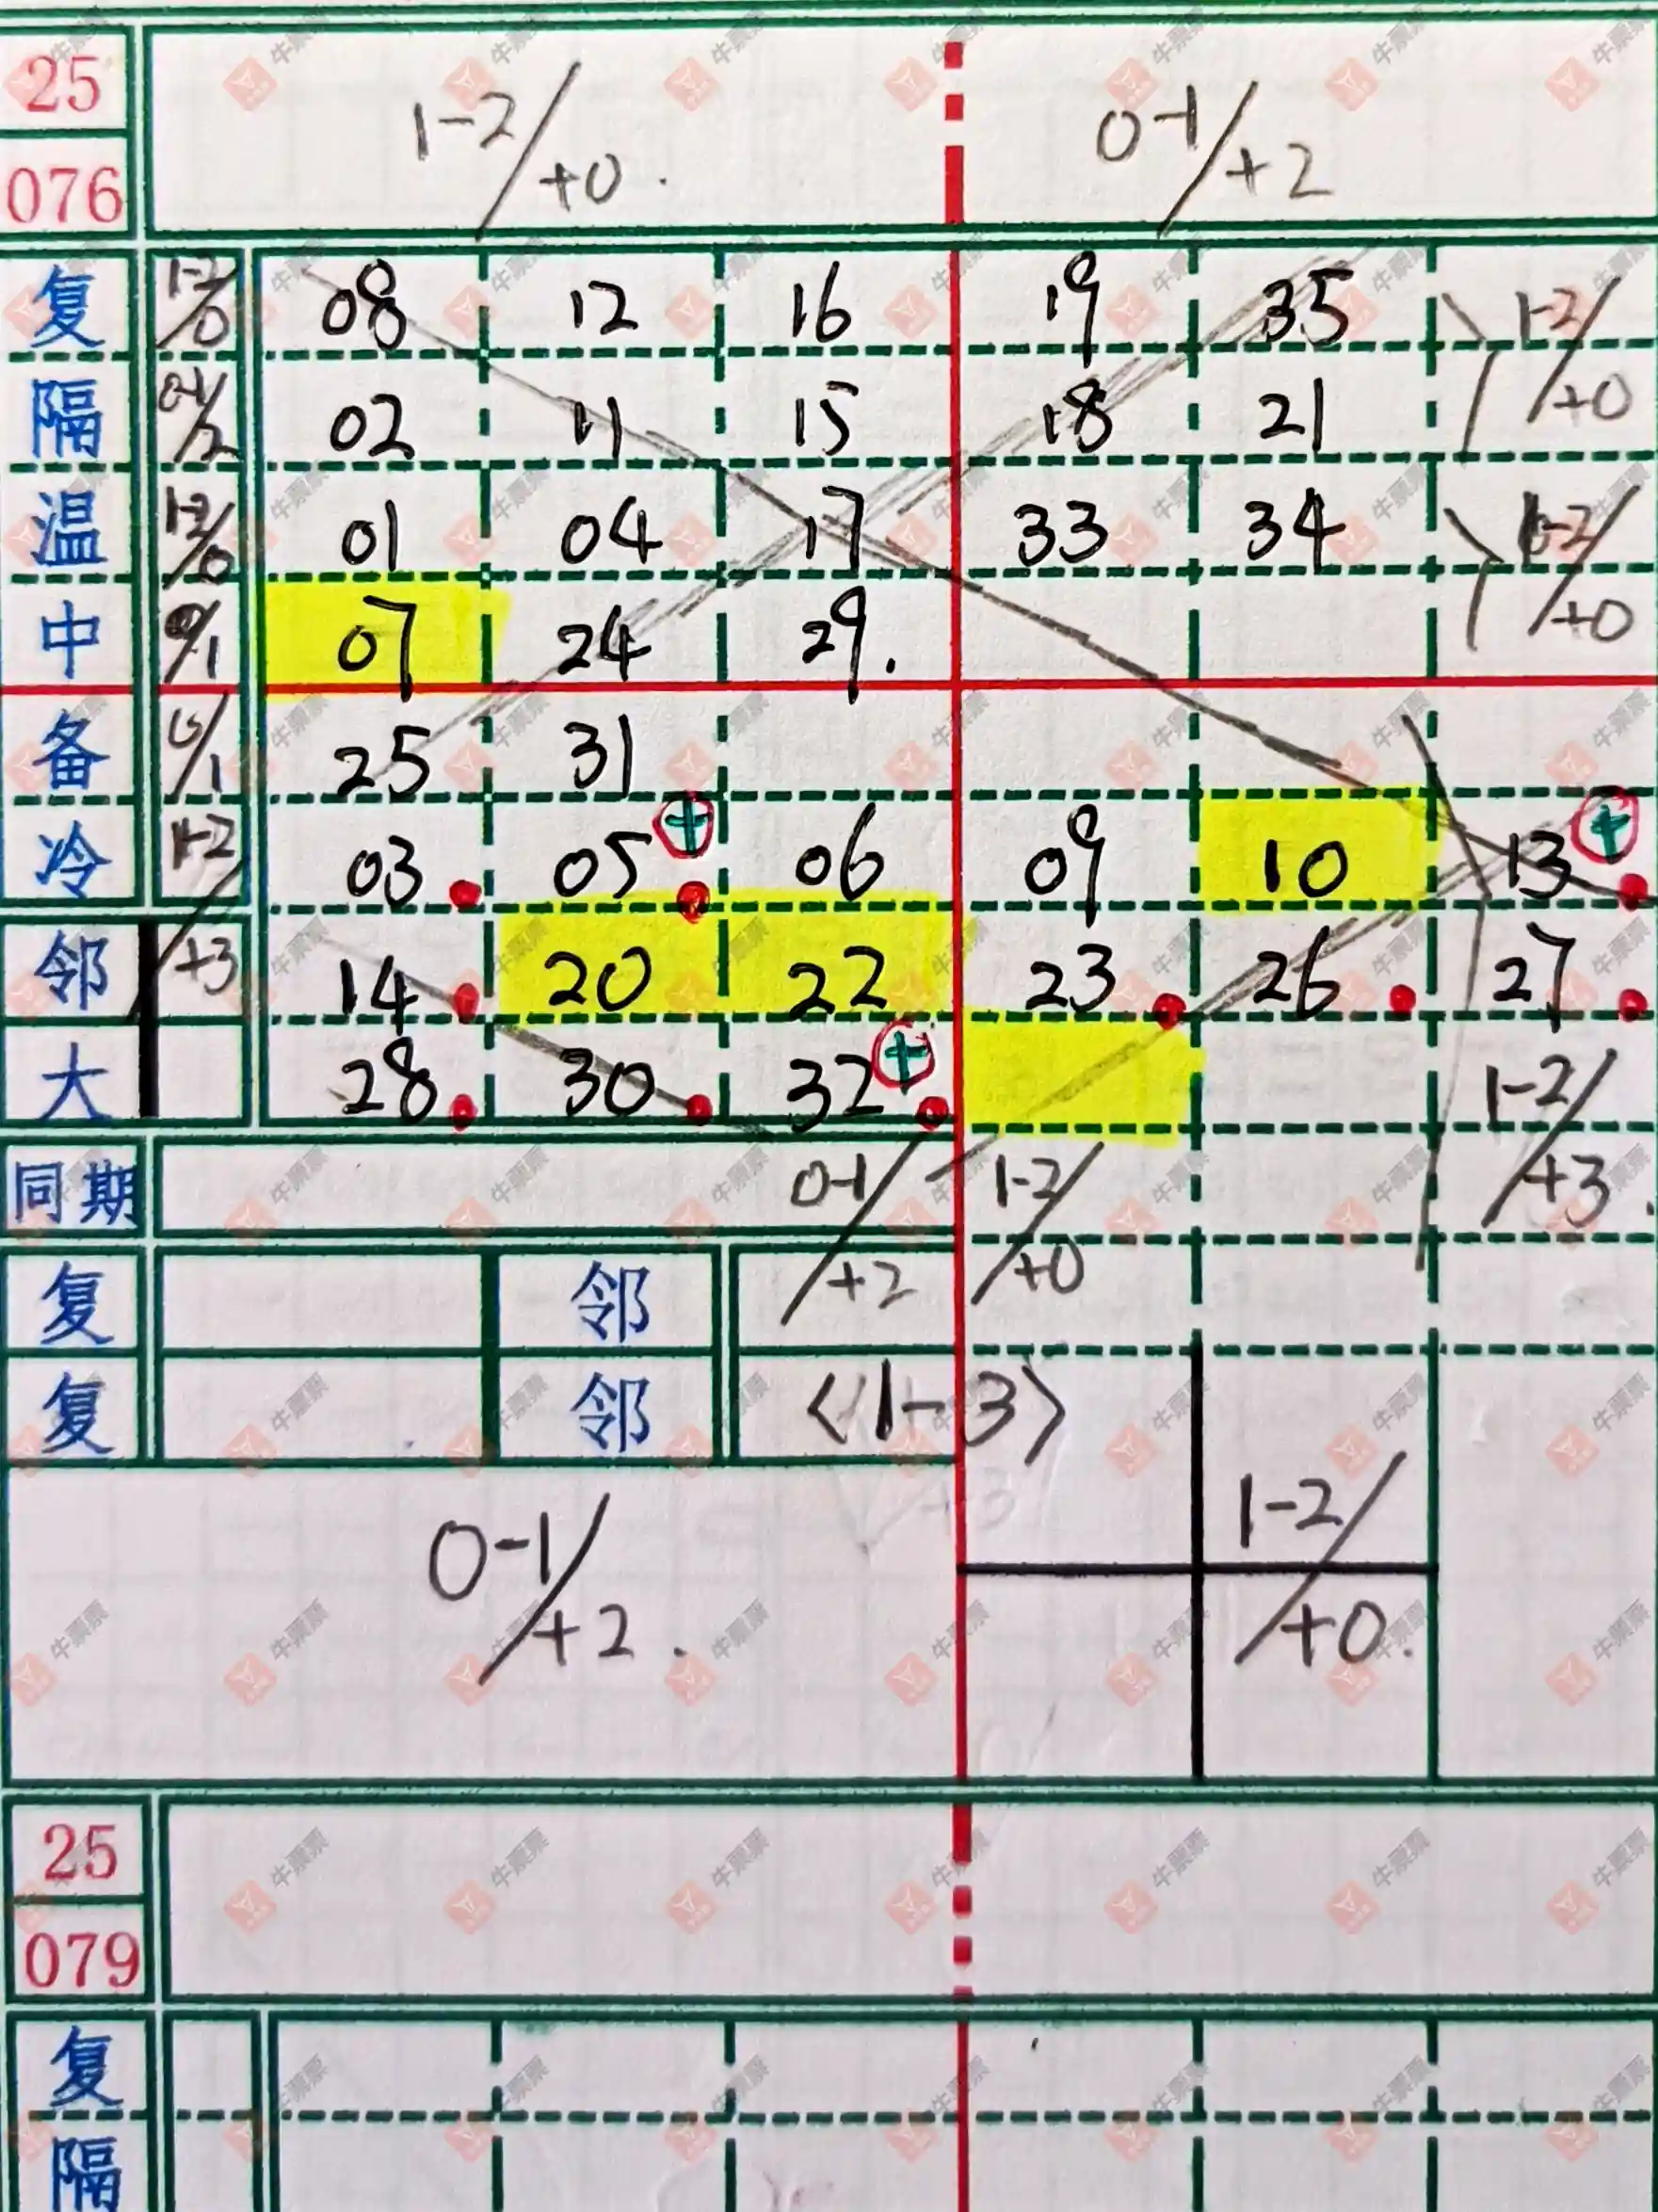 25
076
1-2/+0.
0-1/+2
复 1-2/0 08 12 16 19 35 1-2/+0
隔 0-1/2 02 11 15 18 21
温 1-2/0 01 04 17 33 34 -2/+0
中 /1 07 24 29.
备 /1 25 31
冷 1-2/+3 03 05 + 06 09 10 13 +
邻 14 20 22 23 26 27
大 28 30 32 + 1-2/+3.
同期 0-1/+2 1-2/+0
复 邻
复 邻 <1-3>
0-1/+2. 1-2/+0.
25
079
复
隔
牛票票